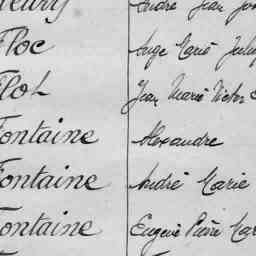 Fleury André Jean
Floc Ange Marie
Flot Jean Marie Victor
Fontaine Alexandre
Fontaine André Marie
Fontaine Eugène Pierre